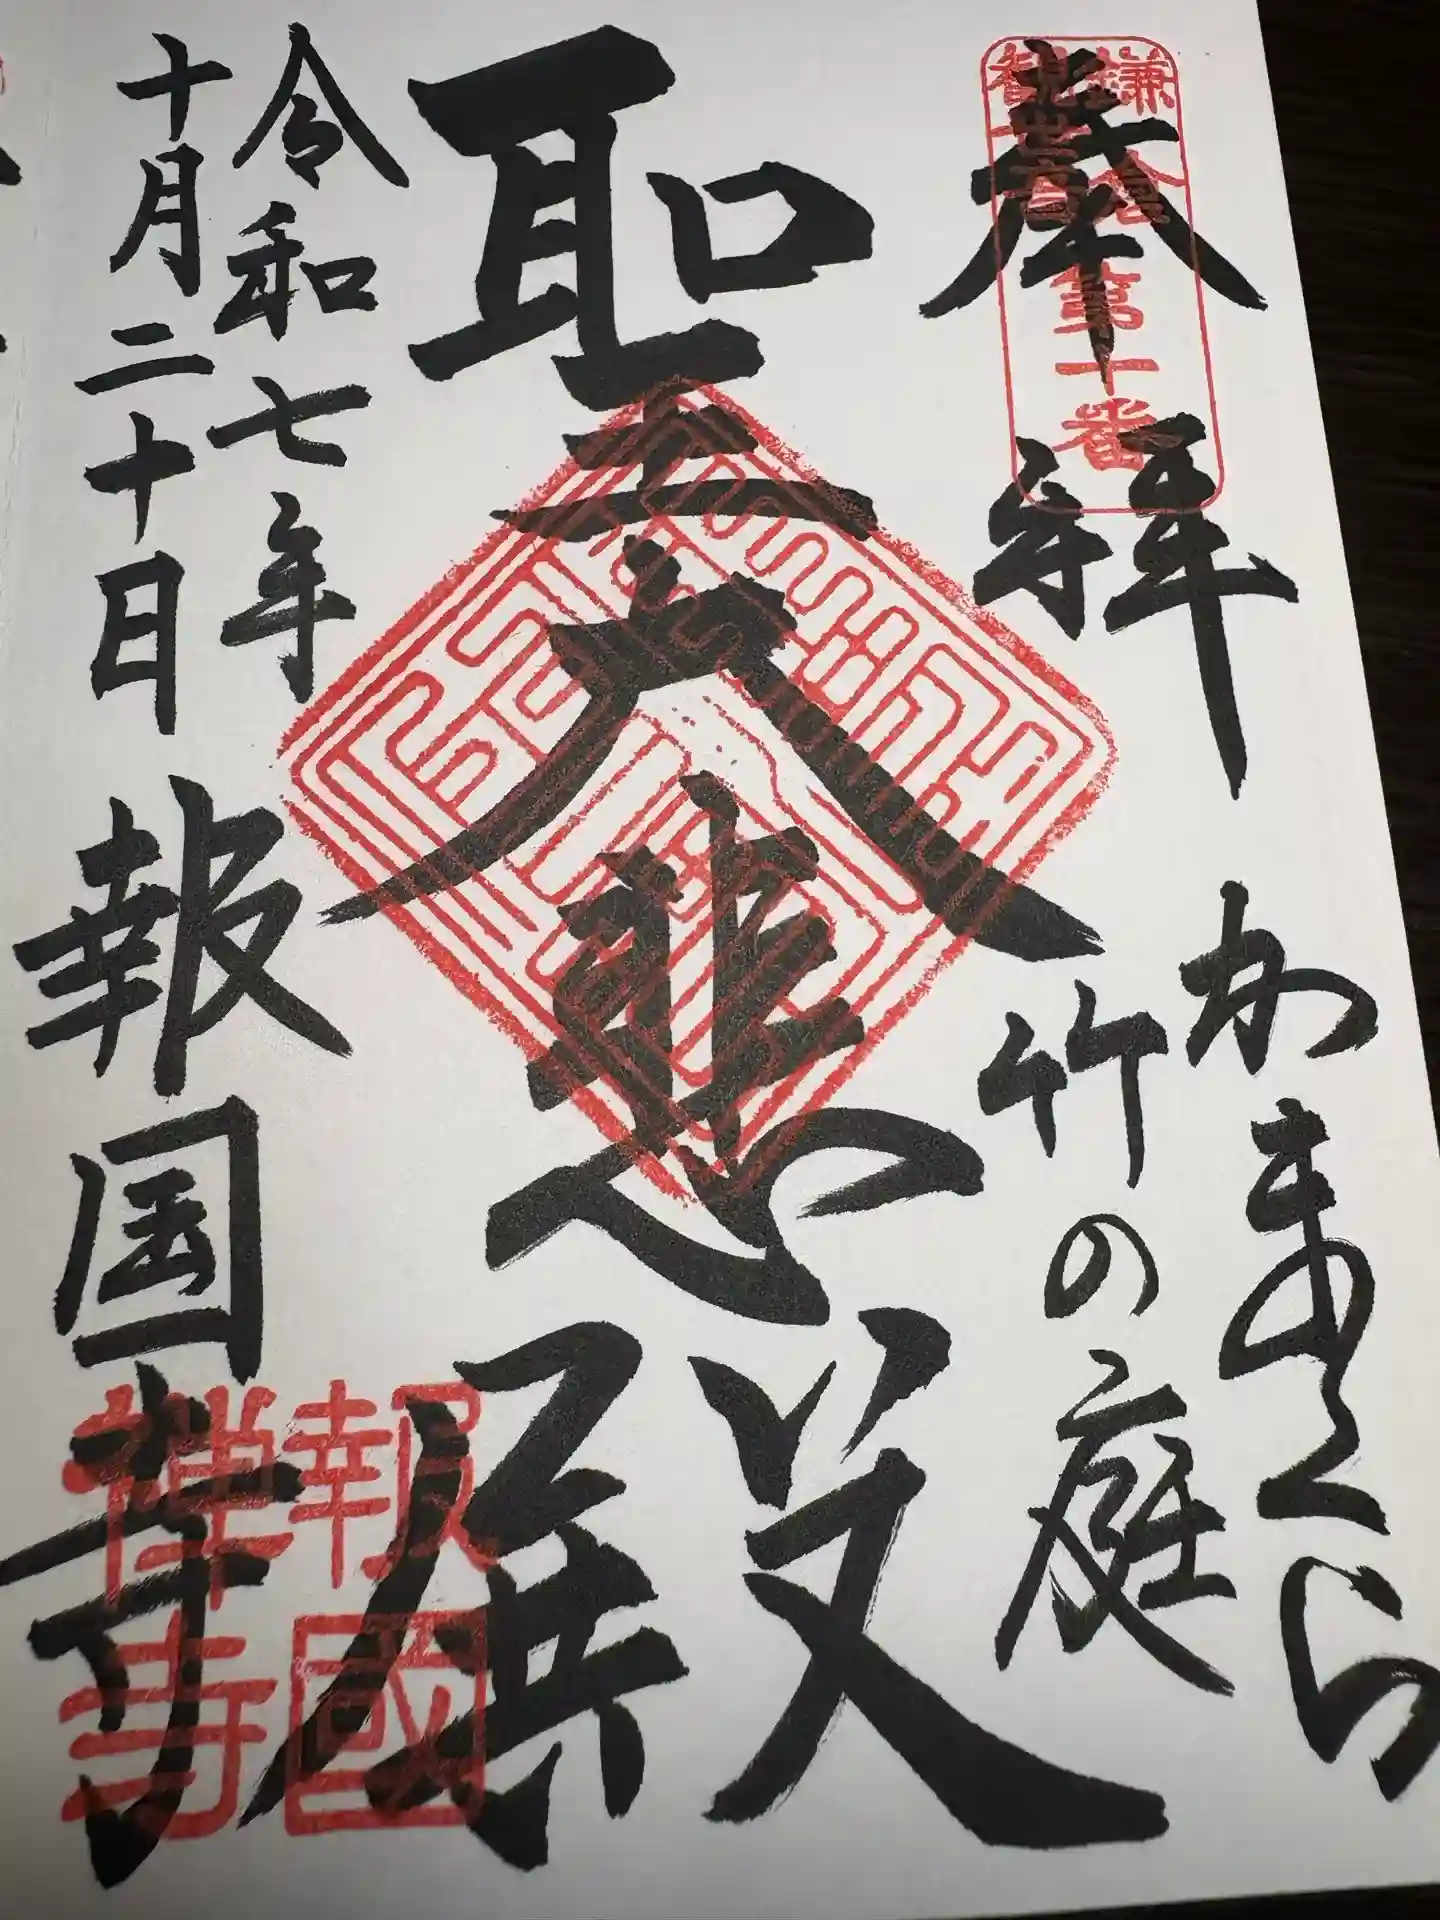 奉拝
かまくら
竹の庭
鎌倉
観世音
第十番
聖大悲殿
令和七年
十月二十日
報国寺
報國
禅寺